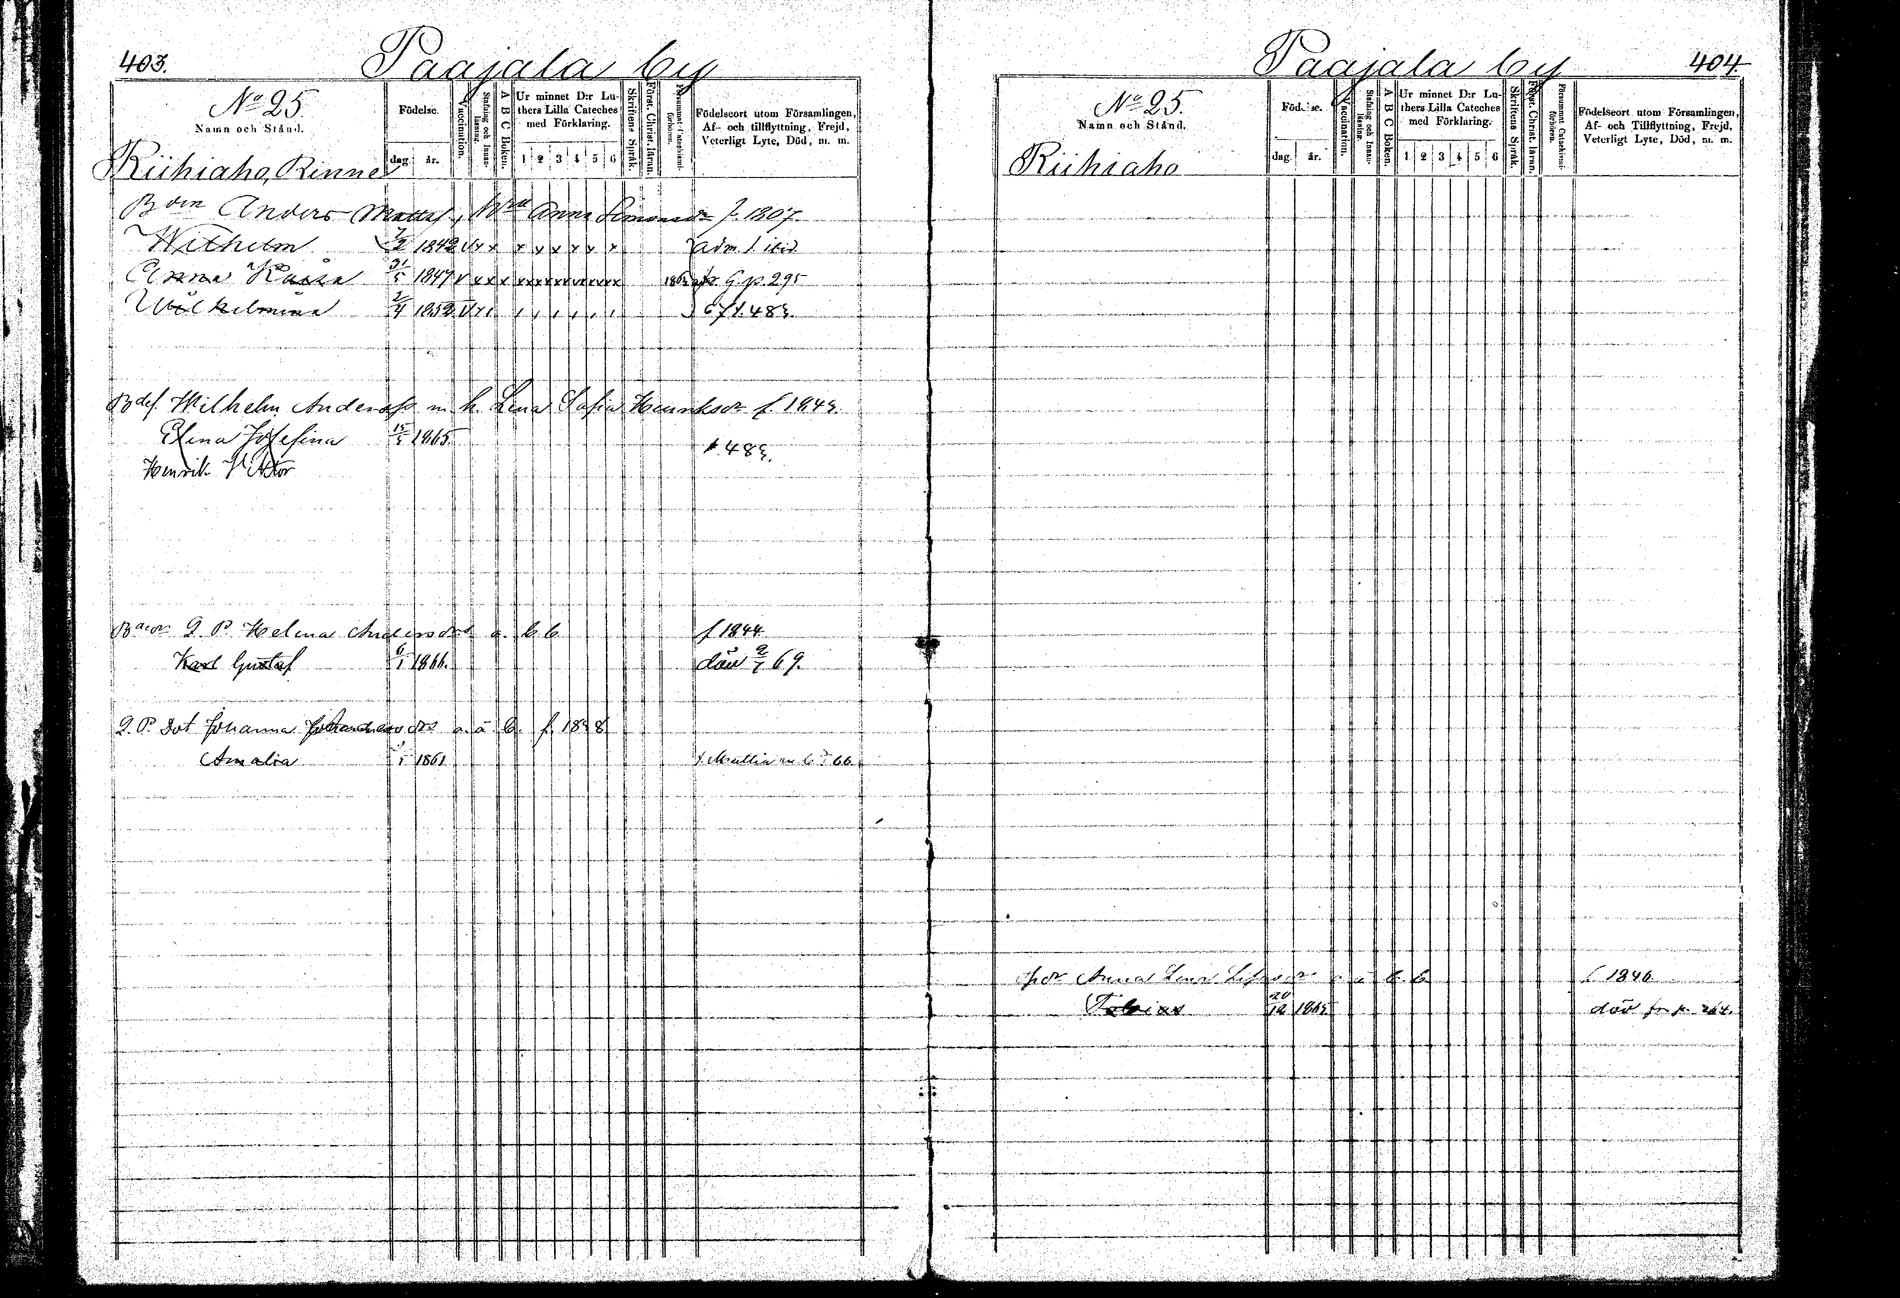 403.
Paajala by
No 25.
Namn och Stånd.
Födelse.
dag. år.
Vaccination.
Stafning och Innanläsning.
A B C Boken.
Ur minnet D:r Luthers Lilla Cateches med Förklaring.
1 2 3 4 5 6
Skriftens Språk.
Först. Christ. läran.
Försummat Catechismiförhören.
Födelseort utom Församlingen,
Af- och tillflyttning, Frejd,
Veterligt Lyte, Död, m. m.
Riihiaho, Rinne
Bden Anders Mattsf., Anna Simonsdr f. 1807
Wilhelm 7/2 1842 v x x x x x x x x adm. ibid
Anna Kaisa 31/5 1847 v x x x p. 295
Wilhelmina 2/4 1852 483.
Bdes. Wilhelm Andersson m. h. Lena Sofia Henriksdr f. 1843.
Elina Josefina 15/5 1865
483.
Henrik Viktor
Q. P. Helena Andersdr a. b. b. f 1844
Karl Gustaf 6/1 1866. död 69.
Q. P. Dot Johanna a. ä. b. f. 1838
Amalia 1861
404
Paajala by
No 25.
Namn och Stånd.
Födelse.
dag. år.
Vaccination.
Stafning och Innanläsning.
A B C Boken.
Ur minnet D:r Luthers Lilla Cateches med Förklaring.
1 2 3 4 5 6
Skriftens Språk.
Först. Christ. läran.
Försummat Catechismiförhören.
Födelseort utom Församlingen,
Af- och Tillflyttning, Frejd,
Veterligt Lyte, Död, m. m.
Riihiaho
Anna Lena b. b. f 1846
Tobias 20/12 1865 död